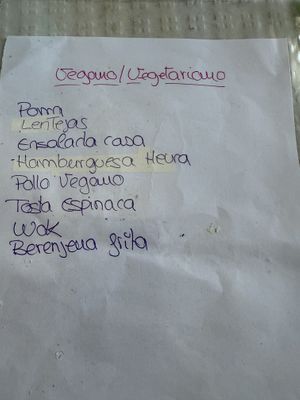 Vegano/Vegetariano
Poma
Lentejas
Ensalada casa
Hamburguesa Heura
Pollo Vegano
Tosta espinaca
Wok
Berenjena frita